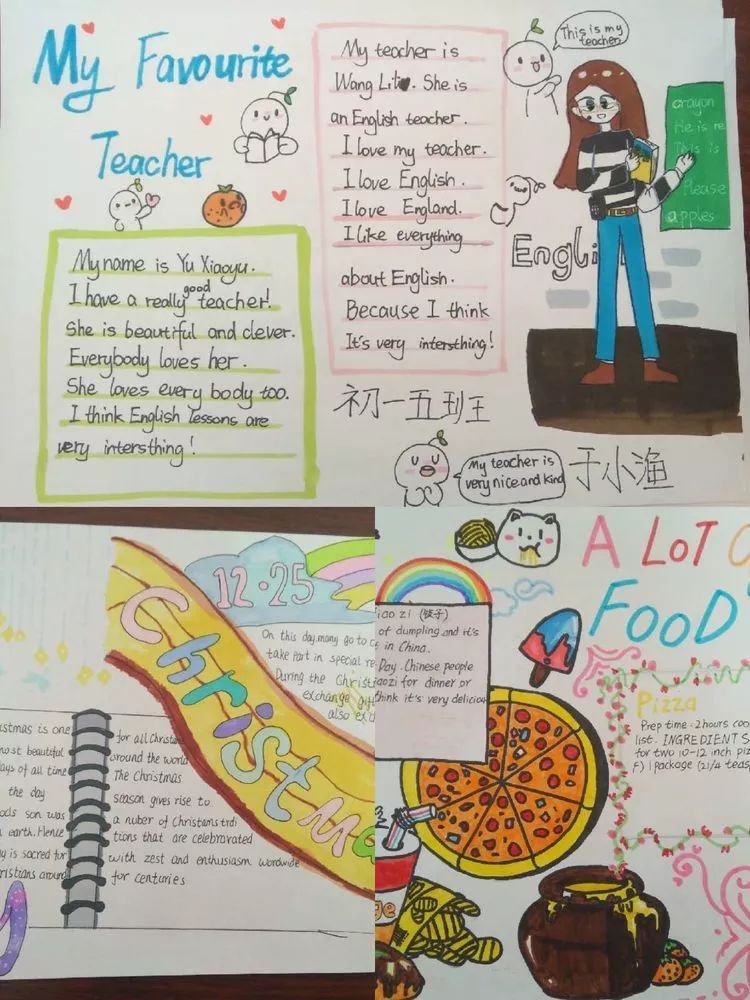 My Favourite
Teacher
My name is Yu Xiaoyu.
I have a really good teacher!
She is beautiful and clever.
Everybody loves her.
She loves every body too.
I think English lessons are
very intersthing!
My teacher is
Wang Lit. She is
an English teacher.
I love my teacher.
I love English.
I love England.
I like everything
about English.
Because I think
It's very intersthing!
This is my
teacher.
crayon
He is re
This is
Please
apples
Engli
初一五班
My teacher is
very nice and kind
于小渔
12·25
Christma
On this day, many go to c
take part in special re
During the Christi
exchange gif
also exc
istmas is one
most beautiful
days of all time
the day
ods son was
earth. Hence
y is sacred for
ristians around
for all Christians
around the world
The Christmas
season gives rise to
a nuber of Christams trdi
tions that are celebravated
with zest and enthusiasm worldwide
for centuries
A LOT O
FOOD
iao zi (饺子)
of dumpling and it's
in China.
Day. Chinese people
iaozi for dinner or
think it's very delicious
Pizza
Prep time: 2hours coo
list. INGREDIENT S
for two 10-12 inch piz
F) 1 package (21/4 teasp
ge